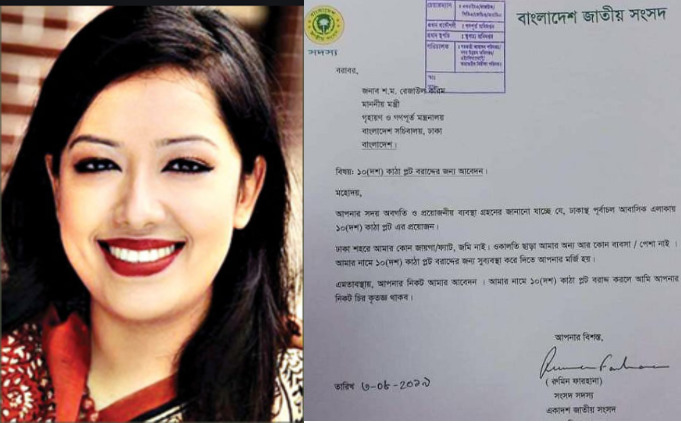 সদস্য
বাংলাদেশ জাতীয় সংসদ
বরাবর,
জনাব শ.ম. রেজাউল করিম
মাননীয় মন্ত্রী
গৃহায়ণ ও গণপূর্ত মন্ত্রনালয়
বাংলাদেশ সচিবালয়, ঢাকা
বাংলাদেশ।
বিষয়: ১০(দশ) কাঠা প্লট বরাদ্দের জন্য আবেদন।
মহোদয়,
আপনার সদয় অবগতি ও প্রয়োজনীয় ব্যবস্থা গ্রহনের জানানো যাচ্ছে যে, ঢাকাস্থ পূর্বাচল আবাসিক এলাকায়
১০(দশ) কাঠা প্লট এর প্রয়োজন।
ঢাকা শহরে আমার কোন জায়গা/ফ্যাট, জমি নাই। ওকালতি ছাড়া আমার অন্য আর কোন ব্যবসা / পেশা নাই ।
আমার নামে ১০(দশ) কাঠা প্লট বরাদ্দের জন্য সুব্যবস্থা করে দিতে আপনার মর্জি হয়।
এমতাবস্থায়, আপনার নিকট আমার আবেদন । আমার নামে ১০(দশ) কাঠা প্লট বরাদ্দ করলে আমি আপনার
নিকট চির কৃতজ্ঞ থাকব।
আপনার বিশ্বস্ত,
( রুমিন ফারহানা)
সংসদ সদস্য
একাদশ জাতীয় সংসদ
তারিখ ৩-০৮-২০১৯